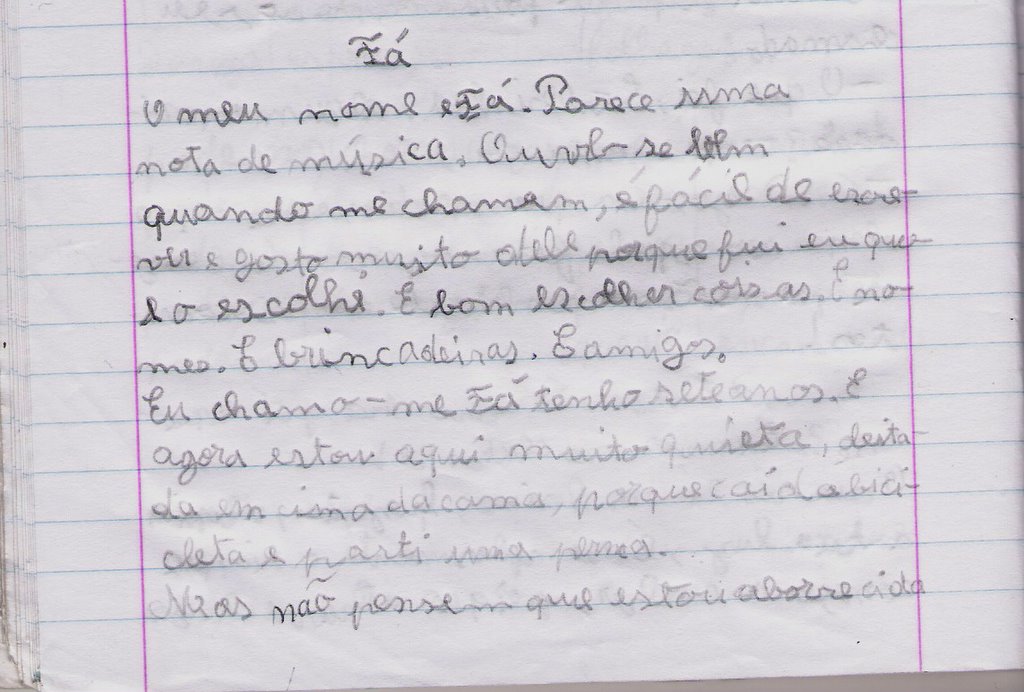 Fá
O meu nome e Fá. Parece uma
nota de música. Ouve-se bem
quando me chamam, é fácil de escre-
ver e gosto muito dele porque fui eu qu-
e o escolhi. É bom escolher coisas. E no-
mes. E brincadeiras. E amigos.
Eu chamo-me Fá tenho sete anos. E
agora estou aqui muito quieta, deita-
da em cima da cama, porque caí da bici-
cleta e parti uma perna.
Mas não pensem que estou aborrecida